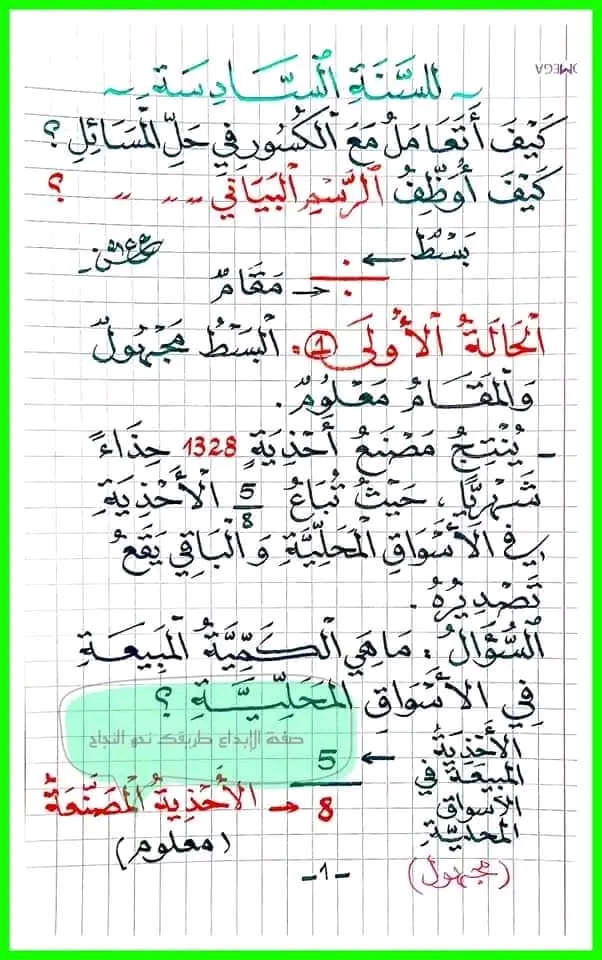 OMEGA
~ للسَّنَةِ السَّادِسَةِ ~
كَيْفَ أَتَعَامَلُ مَعَ الْكُسُورِ فِي حَلِّ الْمَسَائِلِ ؟
كَيْفَ أُوَظِّفُ الرَّسْمِ الْبَيَانِي ,, ,, ,, ؟
بَسْطٌ ←
→ مَقَامٌ
الْحَالَةُ الْأُولَى 1 : الْبَسْطُ مَجْهُولٌ
وَالْمَقَامُ مَعْلُومٌ .
- يُنْتِجُ مَصْنَعُ أَحْذِيَةٍ 1328 حِذَاءً
شَهْرِيًّا ، حَيْثُ تُبَاعُ 5/8 الْأَحْذِيَةِ
فِي الْأَسْوَاقِ الْمَحَلِّيَّةِ وَالْبَاقِي يَقَعُ
تَصْدِيرُهُ .
السُّؤَالُ : مَا هِيَ الْكَمِّيَّةُ الْمَبِيعَةِ
فِي الْأَسْوَاقِ الْمَحَلِّيَّةِ ؟
صفحة الإبداع طريقك نحو النجاح
الأَحْذِيَةُ ← 5
المَبِيعَةُ فِي
الأسواق
المحليّةِ
(مجهول)
8 → الأَحْذِيَةُ الْمُصَنَّعَةُ
(معلوم)
-1-